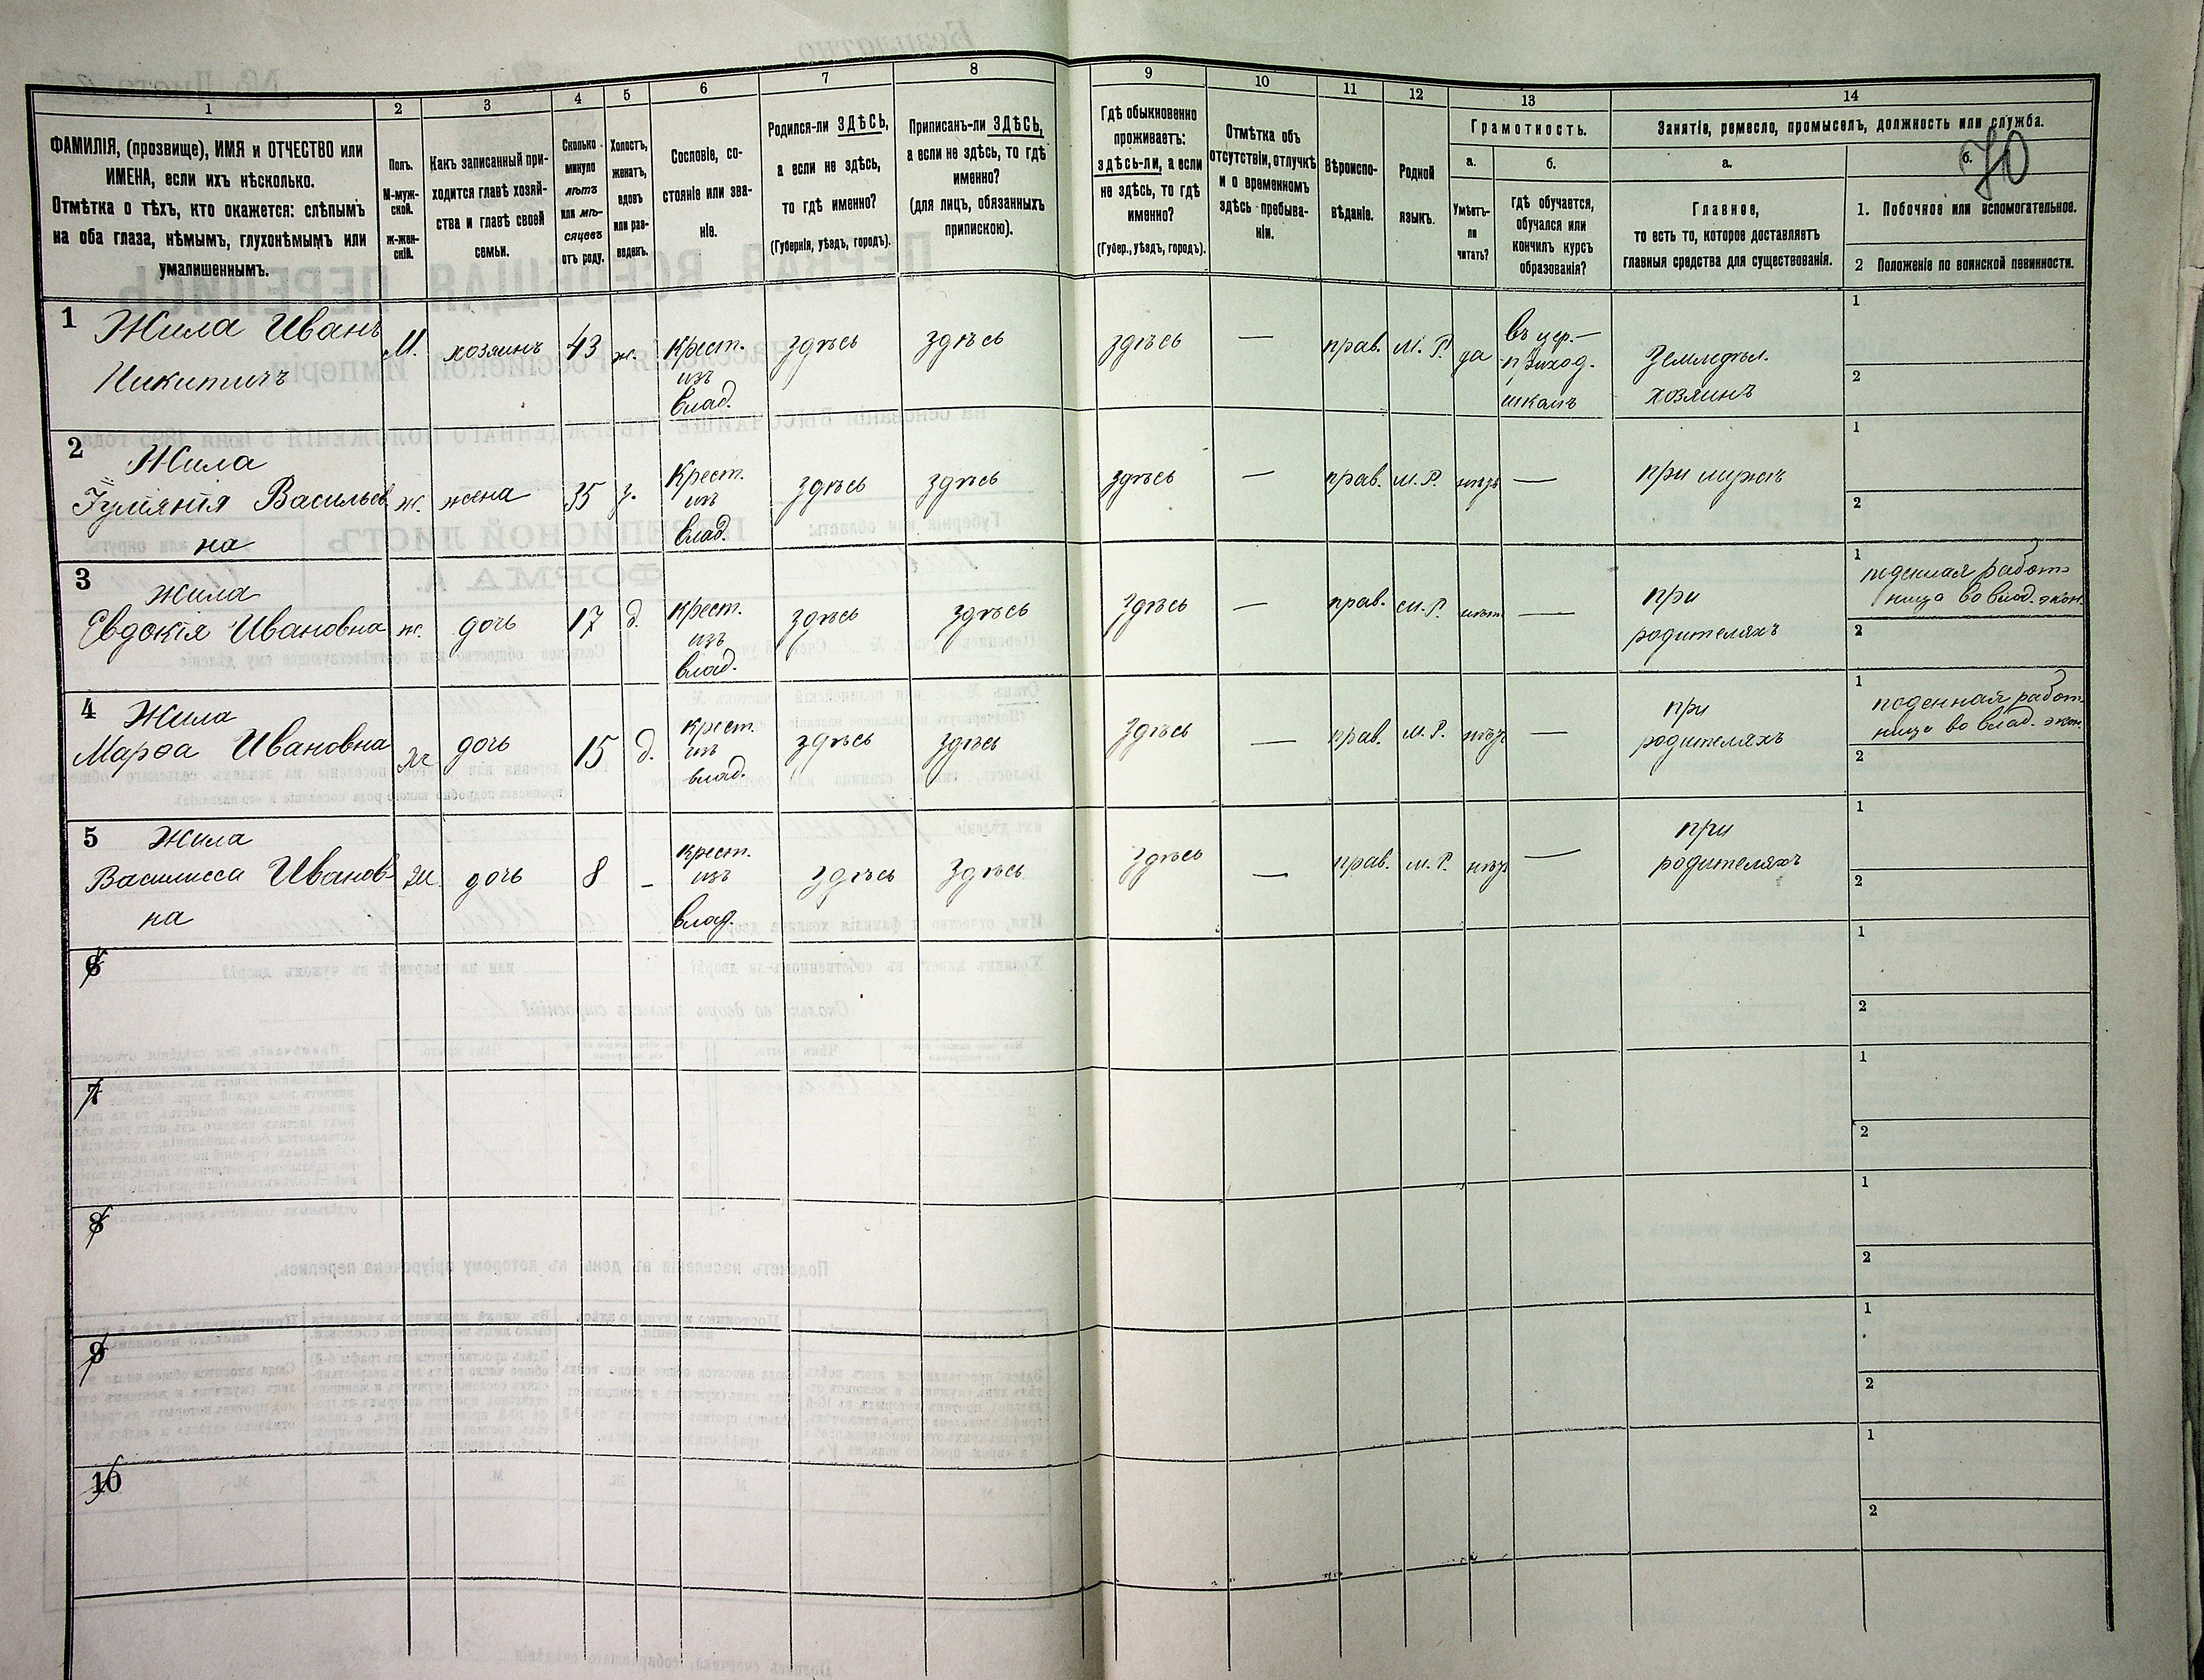 70
1 2 3 4 5 6 7 8 9 10 11 12 13 14
ФАМИЛІЯ, (прозвище), ИМЯ и ОТЧЕСТВО или
ИМЕНА, если ихъ нѣсколько.
Отмѣтка о тѣхъ, кто окажется: слѣпымъ
на оба глаза, нѣмымъ, глухонѣмымъ или
умалишеннымъ.
Полъ.
М-муж-
ской.
Ж-жен-
скій.
Какъ записанный при-
ходится главѣ хозяй-
ства и главѣ своей
семьи.
Сколько
минуло
лѣтъ
или мѣ-
сяцевъ
отъ роду.
Холостъ,
женатъ,
вдовъ
или раз-
веденъ.
Сословіе, со-
стояніе или зва-
ніе.
Родился-ли ЗДѢСЬ,
а если не здѣсь,
то гдѣ именно?
(Губернія, уѣздъ, городъ).
Приписанъ-ли ЗДѢСЬ,
а если не здѣсь, то гдѣ
именно?
(для лицъ, обязанныхъ
припискою).
Гдѣ обыкновенно
проживаетъ:
здѣсь-ли, а если
не здѣсь, то гдѣ
именно?
(Губер., уѣздъ, городъ).
Отмѣтка объ
отсутствіи, отлучкѣ
и о временномъ
здѣсь пребыва-
ніи.
Вѣроиспо-
вѣданіе.
Родной
языкъ.
Грамотность.
а. б.
Умѣетъ-
ли
читать?
гдѣ обучается,
обучался или
кончилъ курсъ
образованія?
Занятіе, ремесло, промыселъ, должность или служба.
а. б.
Главное,
то есть то, которое доставляетъ
главныя средства для существованія.
1. Побочное или вспомогательное.
2 Положеніе по воинской повинности.
1 Жила Иванъ
Никитичъ
М. хозяинъ 43 ж.
Крест.
изъ
влад.
здѣсь здѣсь здѣсь — прав. М. Р. да
въ цер.-
приход.
школѣ
Земледѣл.
хозяинъ
1
2
2 Жила
Васильев
на
ж. жена 35 з.
Крест.
изъ
влад.
здѣсь здѣсь здѣсь — прав. М. Р. нѣтъ —
при мужѣ
1
2
3 Жила
Евдокія Ивановна
ж. дочь 17 д.
Крест.
изъ
влад.
здѣсь здѣсь здѣсь — прав. М. Р. нѣтъ —
при
родителяхъ
1 поденная работ-
ница во влад. экон.
2
4 Жила
Марѳа Ивановна
ж. дочь 15 д.
крест.
изъ
влад.
здѣсь здѣсь здѣсь — прав. М. Р. нѣтъ —
при
родителяхъ
1 поденная работ-
ница во влад. экон.
2
5 Жила
Василисса Иванов-
на
ж. дочь 8 –
крест.
изъ
влад.
здѣсь здѣсь здѣсь — прав. М. Р. нѣтъ —
при
родителяхъ
1
2
6
1
2
7
1
2
8
1
2
9
1
2
10
1
2